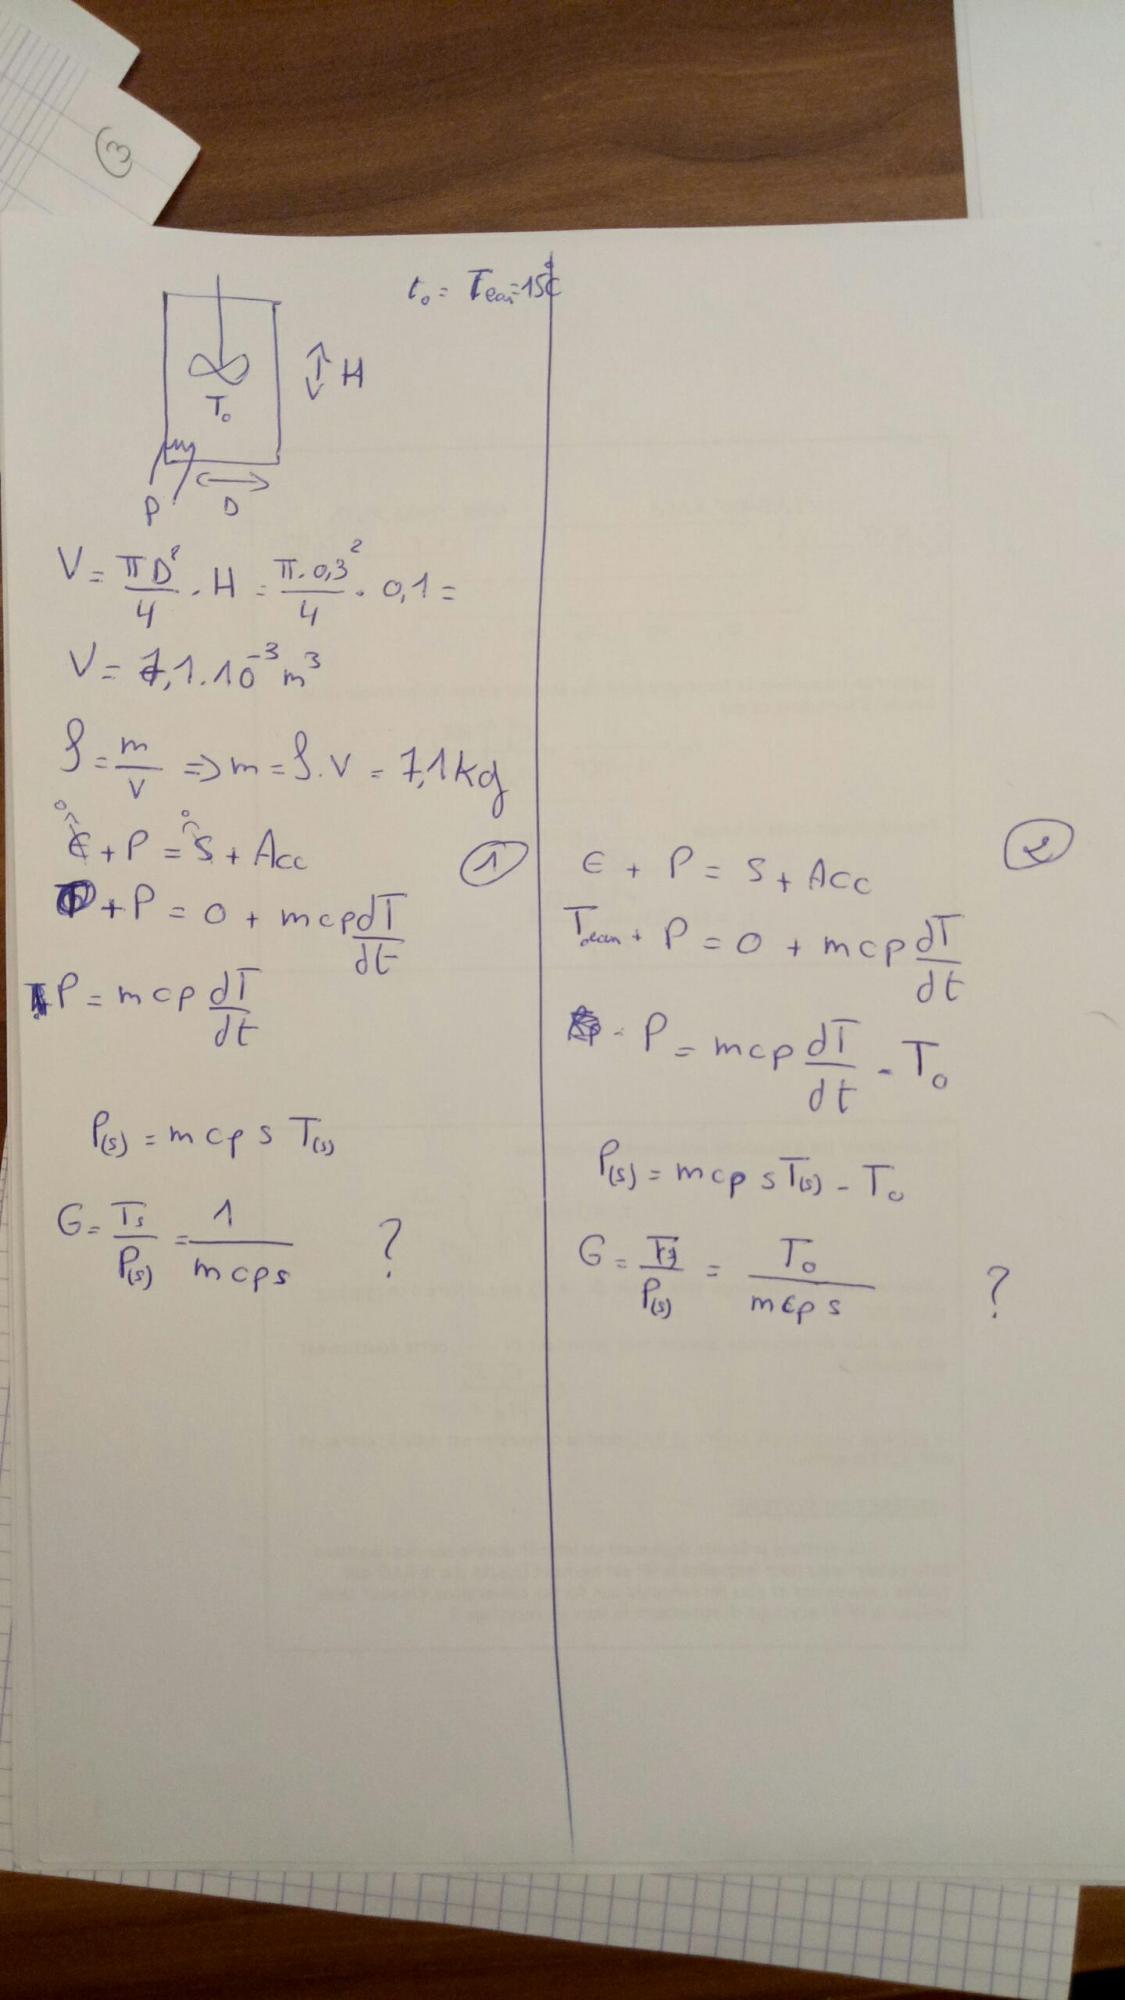 3
t₀ = Teau=15°C
H
T₀
P
D
V = πD²/4 . H = π.0,3²/4 . 0,1 =
V = 7,1.10⁻³ m³
ρ = m/V => m = ρ.V = 7,1kg
E + P = S + Acc
+ P = 0 + mcp dT/dt
P = mcp dT/dt
P(s) = mcp s T(s)
G = Ts/P(s) = 1/mcps ?
1
2
E + P = S + Acc
+ P = 0 + mcp dT/dt
P = mcp dT/dt - T₀
P(s) = mcp sT(s) - T₀
G = /P(s) = T₀/mcp s ?